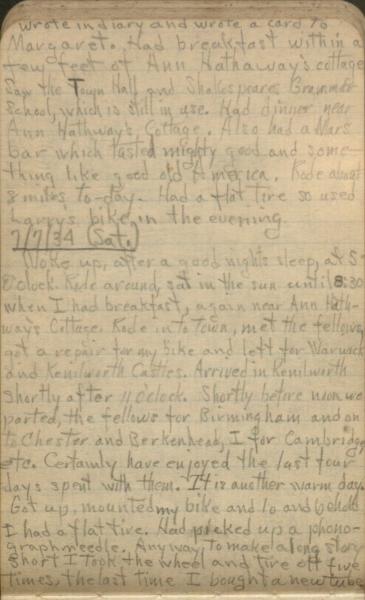 wrote in diary and wrote a card to
Margaret. Had breakfast within a
few feet of Ann Hathaway's cottage
Saw the Town Hall and Shakespeares Grammer
School, which is still in use. Had dinner near
Ann Hathway's Cottage. Also had a Mars
bar which tasted mighty good and some-
thing like good old America. Rode about
8 miles to-day. Had a flat tire so used
Larry's bike in the evening.
7/7/34 (Sat.)
Woke up, after a good nights sleep, at 5
o'clock. Rode around, sat in the sun until 8:30
when I had breakfast, again near Ann Hath-
ways Cottage. Rode into Town, met the fellows,
got a repair for my bike and left for Warwick
and Kenilworth Castles. Arrived in Kenilworth
shortly after 11 o'clock. Shortly before noon we
parted, the fellows for Birmingham and on
to Chester and Berkenhead, I for Cambridge,
etc. Certainly have enjoyed the last four
days spent with them. It is another warm day.
Got up, mounted my bike and lo and behold
I had a flat tire. Had picked up a phono-
graph needle. Anyway, to make a long story
short I took the wheel and tire off five
times, the last time I bought a new tube